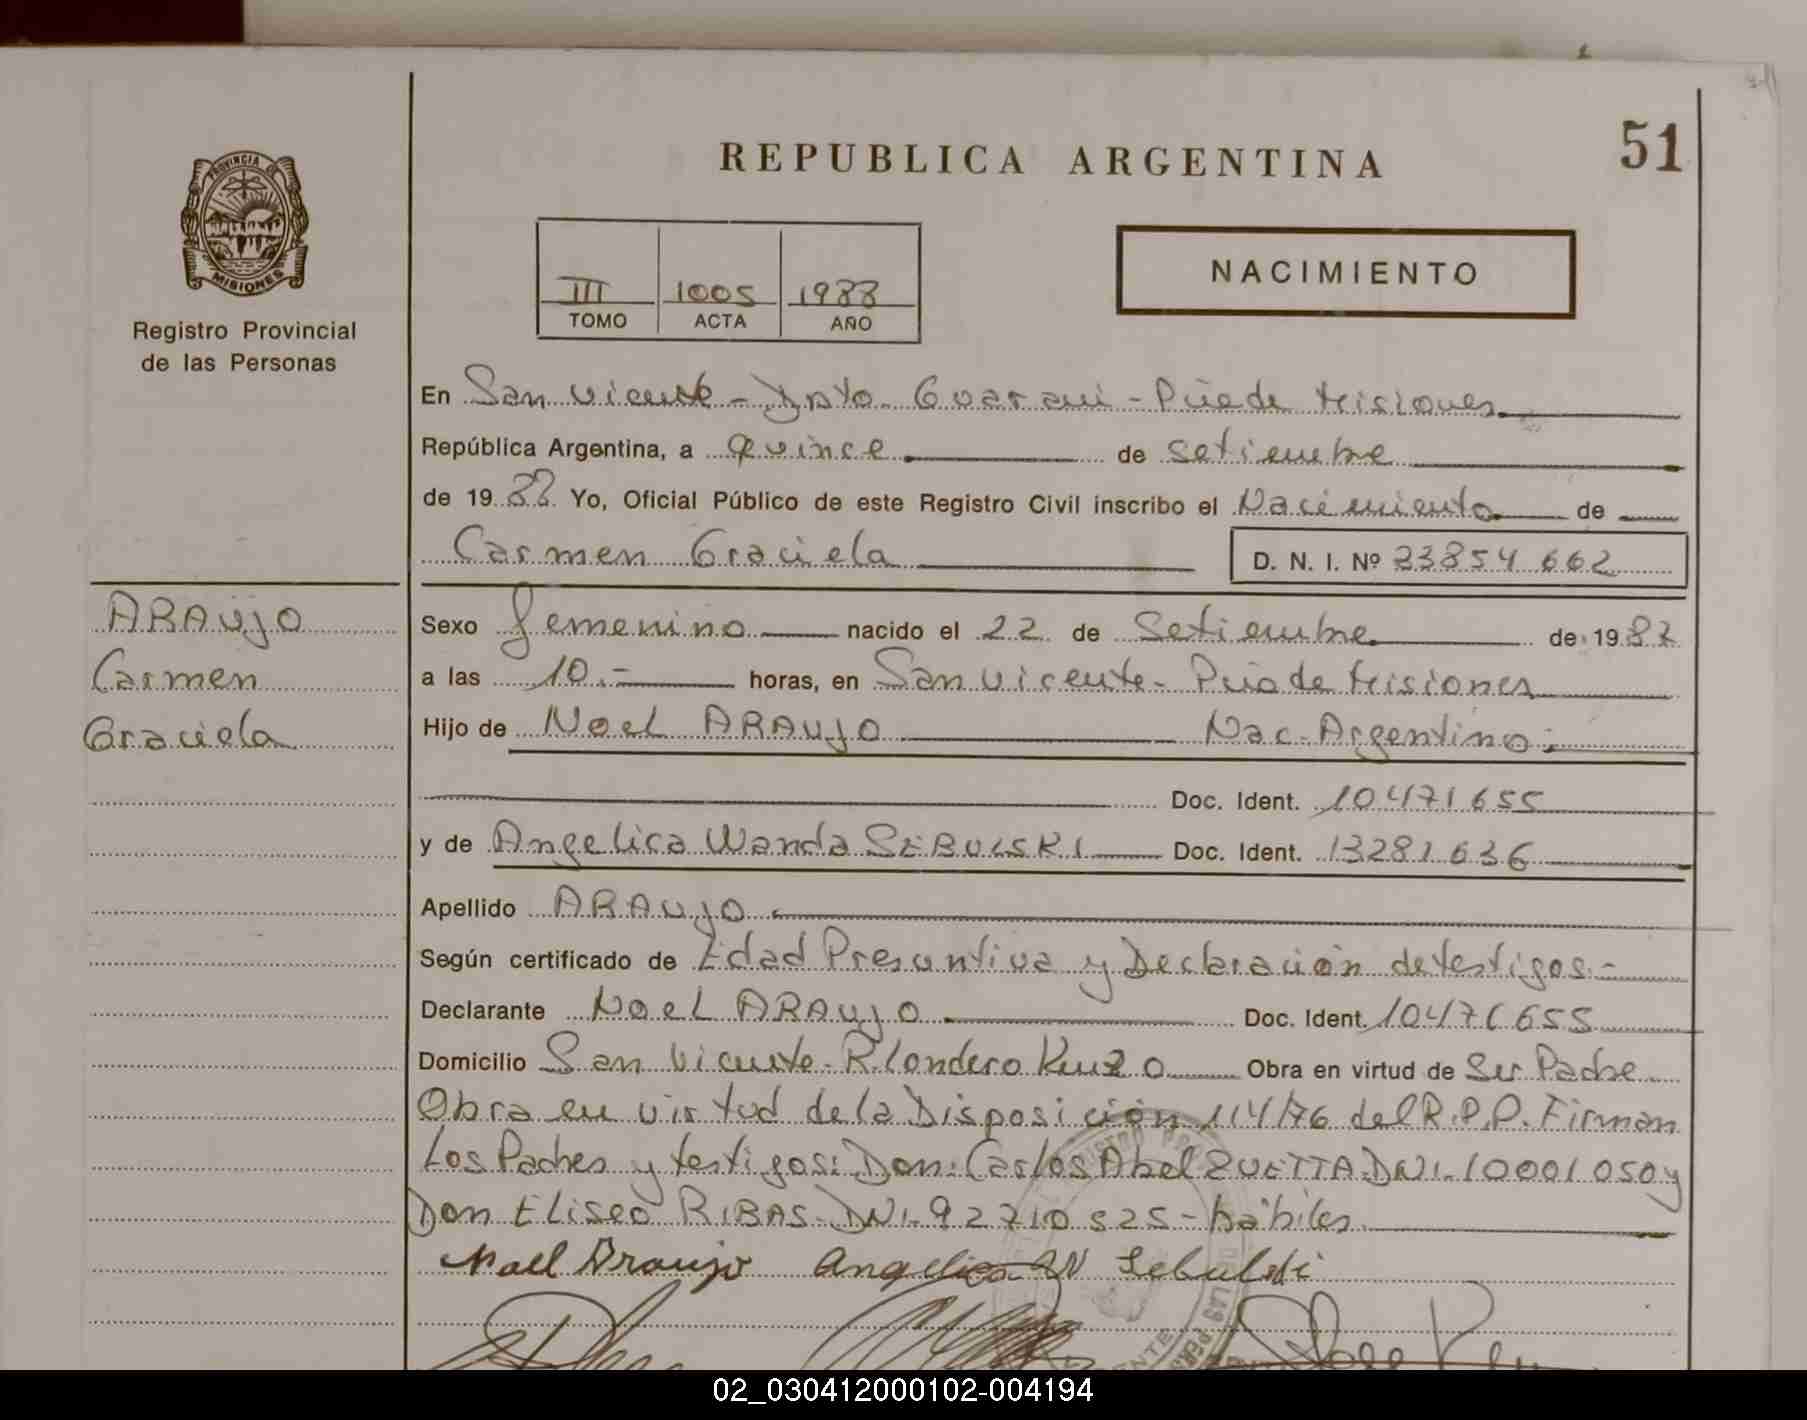 51
REPUBLICA ARGENTINA
PROVINCIA DE
MISIONES
Registro Provincial
de las Personas
III 1005 1988
TOMO ACTA AÑO
NACIMIENTO
En San Vicente - Dpto. Guarani - Pcia de Misiones
República Argentina, a quince de setiembre
de 1988 Yo, Oficial Público de este Registro Civil inscribo el Nacimiento de
Carmen Graciela D. N. I. Nº 33854 662
ARAUJO
Carmen
Graciela
Sexo femenino nacido el 22 de Setiembre de 1987
a las 10.- horas, en San Vicente - Pcia de Misiones
Hijo de Noel ARAUJO Nac. Argentino.
Doc. Ident. 10471655
y de Angelica Wanda SEBULSKI Doc. Ident. 13281636
Apellido ARAUJO
Según certificado de Edad Presuntiva y Declaración de testigos.-
Declarante Noel ARAUJO Doc. Ident. 10471655
Domicilio San Vicente - R. Londero Obra en virtud de Ser Padre
Obra en virtud de la Disposición 114/76 del R.P.P. Firman
Los Padres y testigos: Don: Carlos Abel ZUETTA DNI. 10001050 y
Don Eliseo RIBAS - DNI. 92710525 - hábiles
Noel Araujo Angelica W
02_030412000102-004194